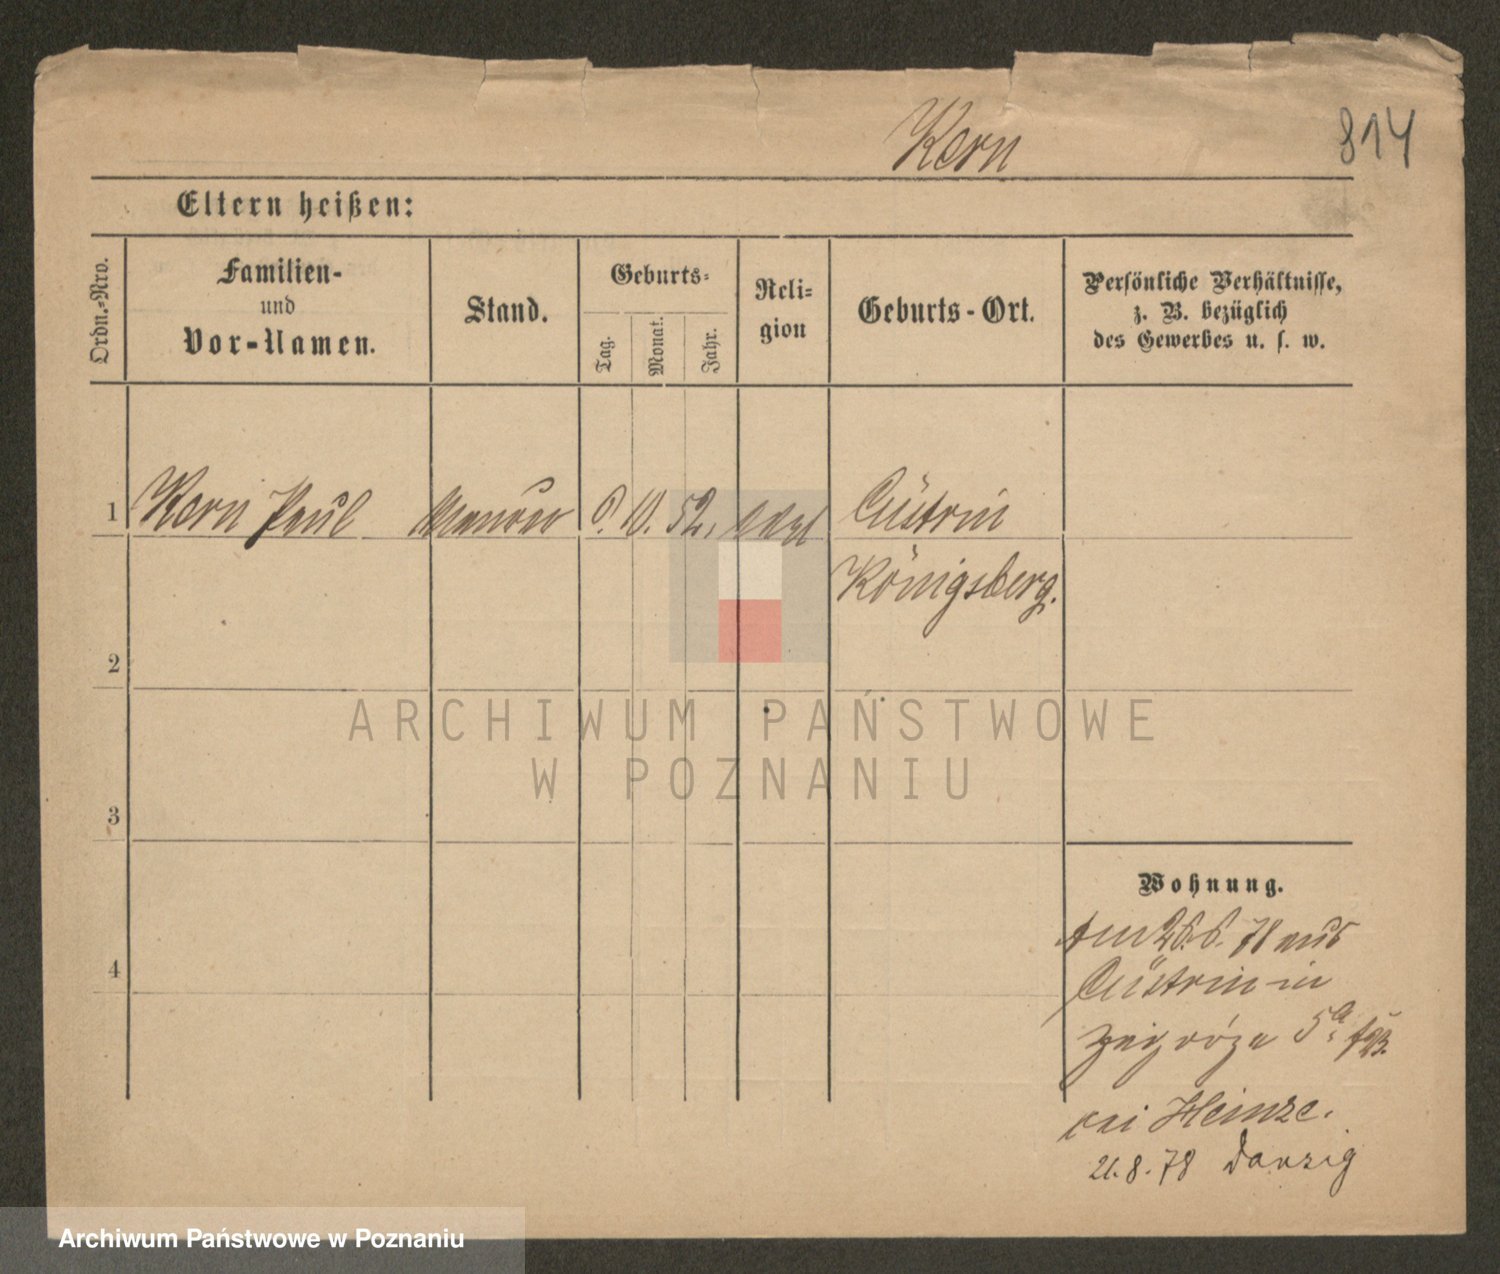 Kern
814
Eltern heißen:
Ordn.-Nro.
Familien-
und
Vor-Namen.
Stand.
Geburts-
Tag.
Monat.
Jahr.
Reli-
gion
Geburts-Ort.
Persönliche Verhältnisse,
z. B. bezüglich
des Gewerbes u. s. w.
1
Kern Paul
Maurer
6. 10. 52.
Cüstrin
Königsberg.
2
3
4
ARCHIWUM PAŃSTWOWE
W POZNANIU
Wohnung.
Am 26.6.78 aus
Cüstrin in
5a
bei Heinze.
21.8.78 Danzig
Archiwum Państwowe w Poznaniu